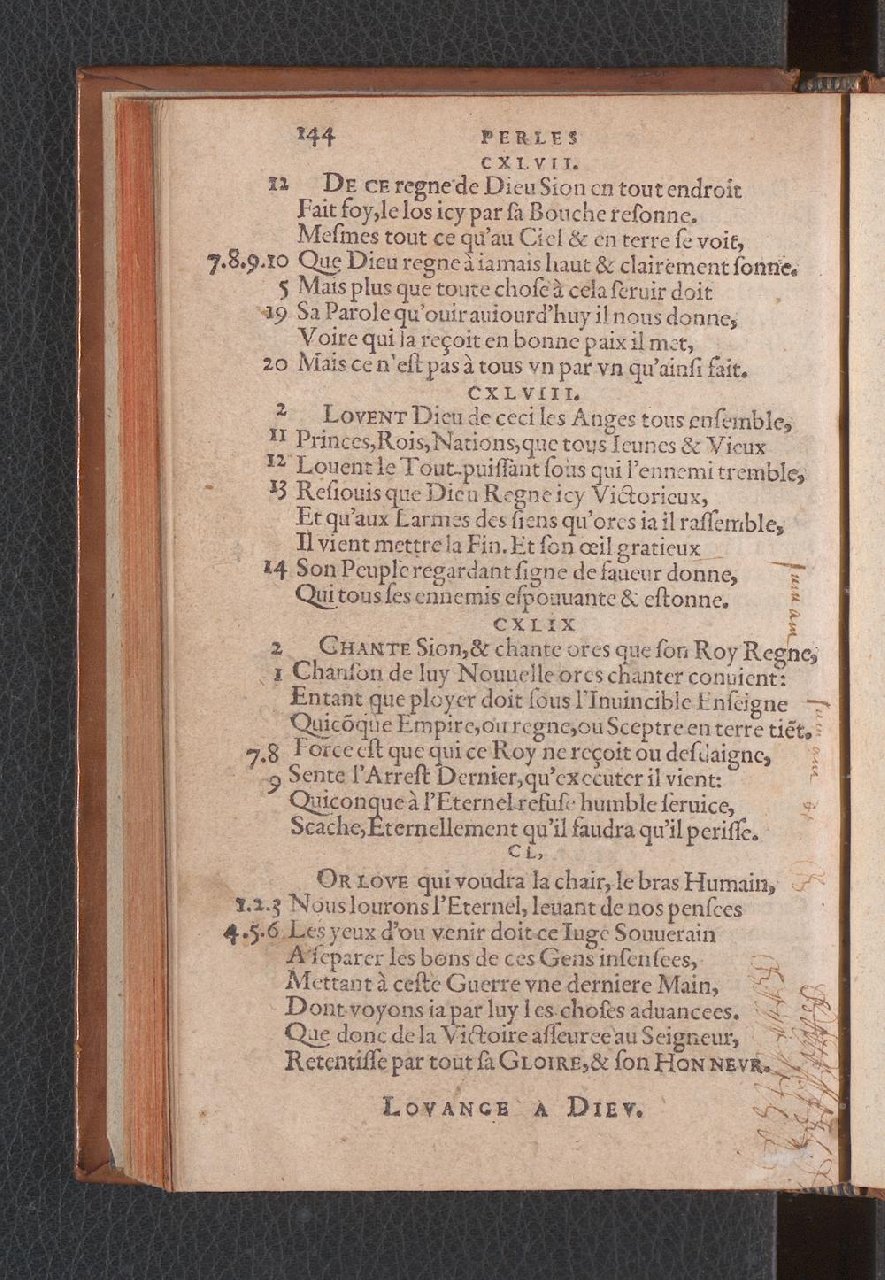 144 PERLES
CXLVII.
12 DE CE regne de Dieu Sion en tout endroit
Fait foy, le los icy par ſa Bouche reſonne.
Meſmes tout ce qu'au Ciel & en terre ſe voit,
7.8.9.10 Que Dieu regne à iamais haut & clairement ſonne.
5 Mais plus que toute choſe à cela ſeruir doit
19 Sa Parole qu'ouir auiourd'huy il nous donne,
Voire qui la reçoit en bonne paix il met,
20 Mais ce n'eſt pas à tous vn par vn qu'ainſi fait.
CXLVIII.
2 LOVENT Dieu de ceci les Anges tous enſemble,
11 Princes, Rois, Nations, que tous Ieunes & Vieux
12 Louent le Tout-puiſſant ſous qui l'ennemi tremble,
13 Reſiouis que Dieu Regne icy Victorieux,
Et qu'aux Larmes des ſiens qu'ores ia il raſſemble,
Il vient mettre la Fin. Et ſon œil gratieux
14 Son Peuple regardant ſigne de faueur donne,
Qui tous ſes ennemis eſpouuante & eſtonne.
CXLIX
2 CHANTE Sion, & chante ores que ſon Roy Regne,
1 Chanſon de luy Nouuelle ores chanter conuient:
Entant que ployer doit ſous l'Inuincible Enſeigne
Quicõque Empire, ou regne, ou Sceptre en terre tiẽt.
7.8 Force eſt que qui ce Roy ne reçoit ou deſdaigne,
9 Sente l'Arreſt Dernier, qu'executer il vient:
Quiconque à l'Eternel refuſe humble ſeruice,
Scache, Eternellement qu'il faudra qu'il periſſe.
CL,
OR LOVE qui voudra la chair, le bras Humain,
1.2.3 Nous lourons l'Eternel, leuant de nos penſees
4.5.6 Les yeux d'ou venir doit ce Iuge Souuerain
A ſeparer les bons de ces Gens inſenſees,
Mettant à ceſte Guerre vne derniere Main,
Dont voyons ia par luy les choſes aduancees.
Que donc de la Victoire aſſeuree au Seigneur,
Retentiſſe par tout ſa GLOIRE, & ſon HONNEVR.
LOVANGE A DIEV.